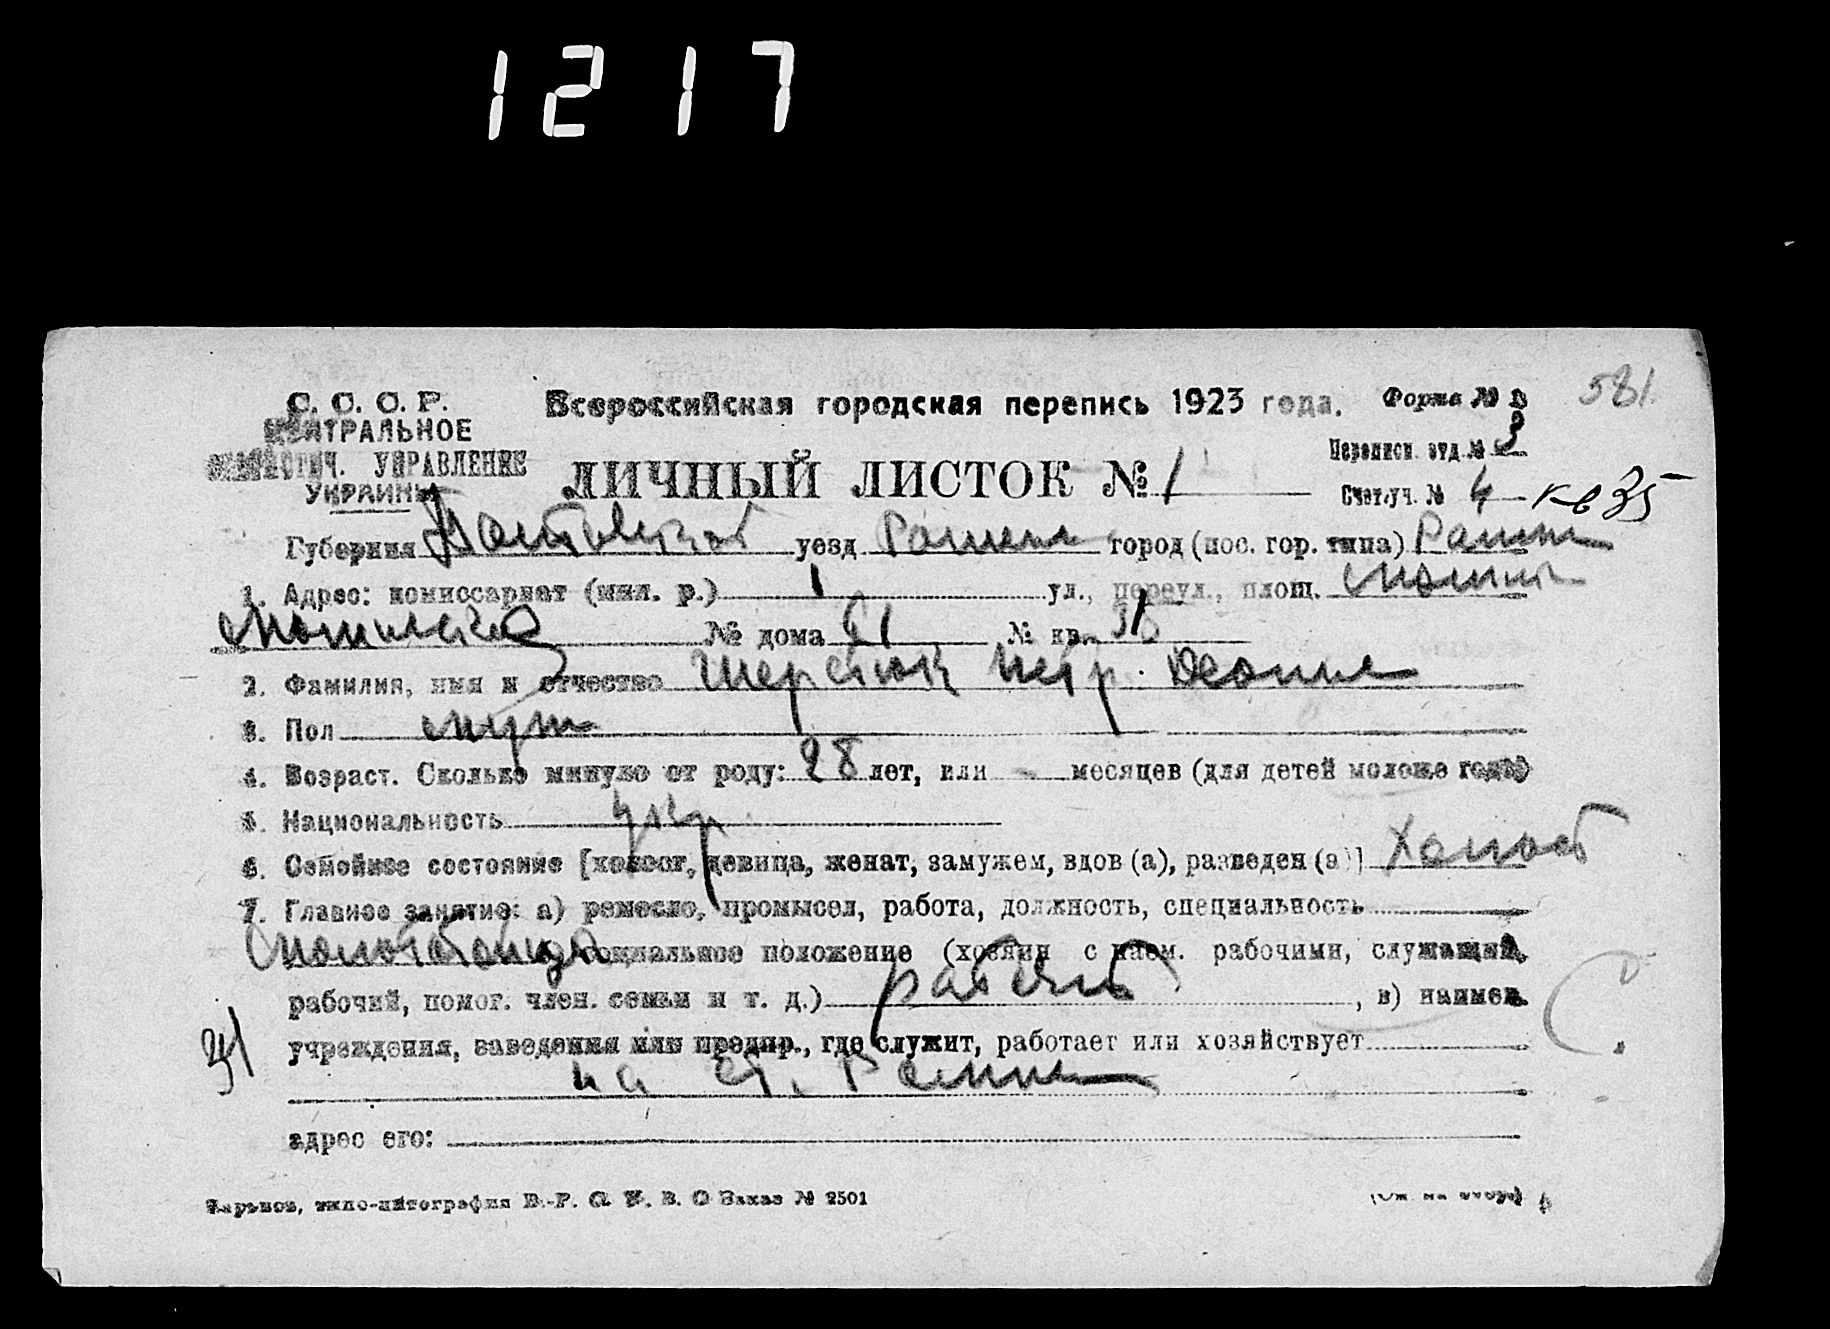 1217
С. С. С. Р.
ЦЕНТРАЛЬНОЕ
СТАТИСТИЧ. УПРАВЛЕНИЕ
УКРАИНЫ
Всероссийская городская перепись 1923 года.
Форма № В
581
ЛИЧНЫЙ ЛИСТОК № 1
Переписн. отд. № 3
Счет.уч. № 4 кв 35
Губерния уезд Ромен город (пос. гор. типа) Ромен
1. Адрес: комиссариат (мил. р.) 1 ул., переул., площ.
№ дома 61 № кв.
2. Фамилия, имя и отчество Шерстюк Петр.
3. Пол муж
4. Возраст. Сколько минуло от роду: 28 лет, или - месяцев (для детей моложе года)
5. Национальность укр.
6. Семейное состояние [холост, девица, женат, замужем, вдов (а), разведен (а)] Холост
7. Главное занятие: а) ремесло, промысел, работа, должность, специальность
Молотобоец б) социальное положение (хозяин с наем. рабочими, служащий,
рабочий, помог. член. семьи и т. д.) рабочий, в) наимен.
учреждения, заведения или предпр., где служит, работает или хозяйствует
на ст. Ромны
адрес его:
Харьков, типо-литография В.-Р. С. У. В. О Заказ № 2501
(См. на обор.)